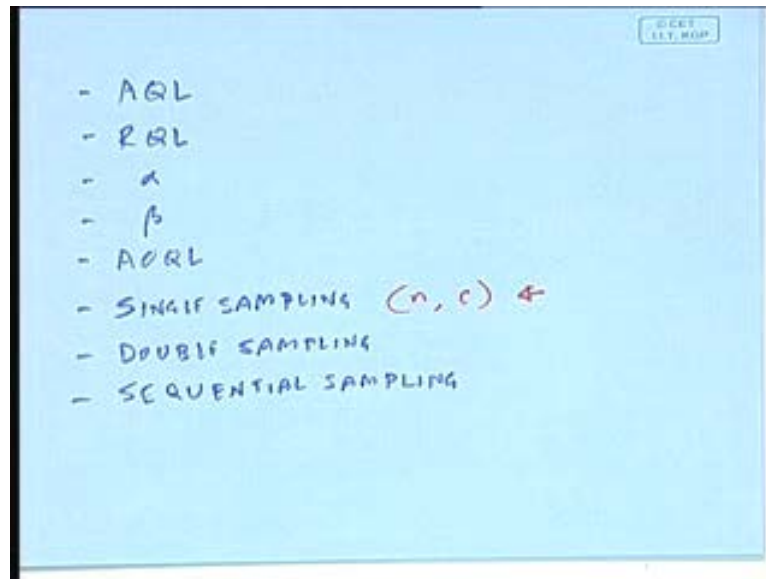 © CET
I.I.T. KGP
- AQL
- RQL
- α
- β
- AOQL
- SINGLE SAMPLING (n, c) ←
- DOUBLE SAMPLING
- SEQUENTIAL SAMPLING